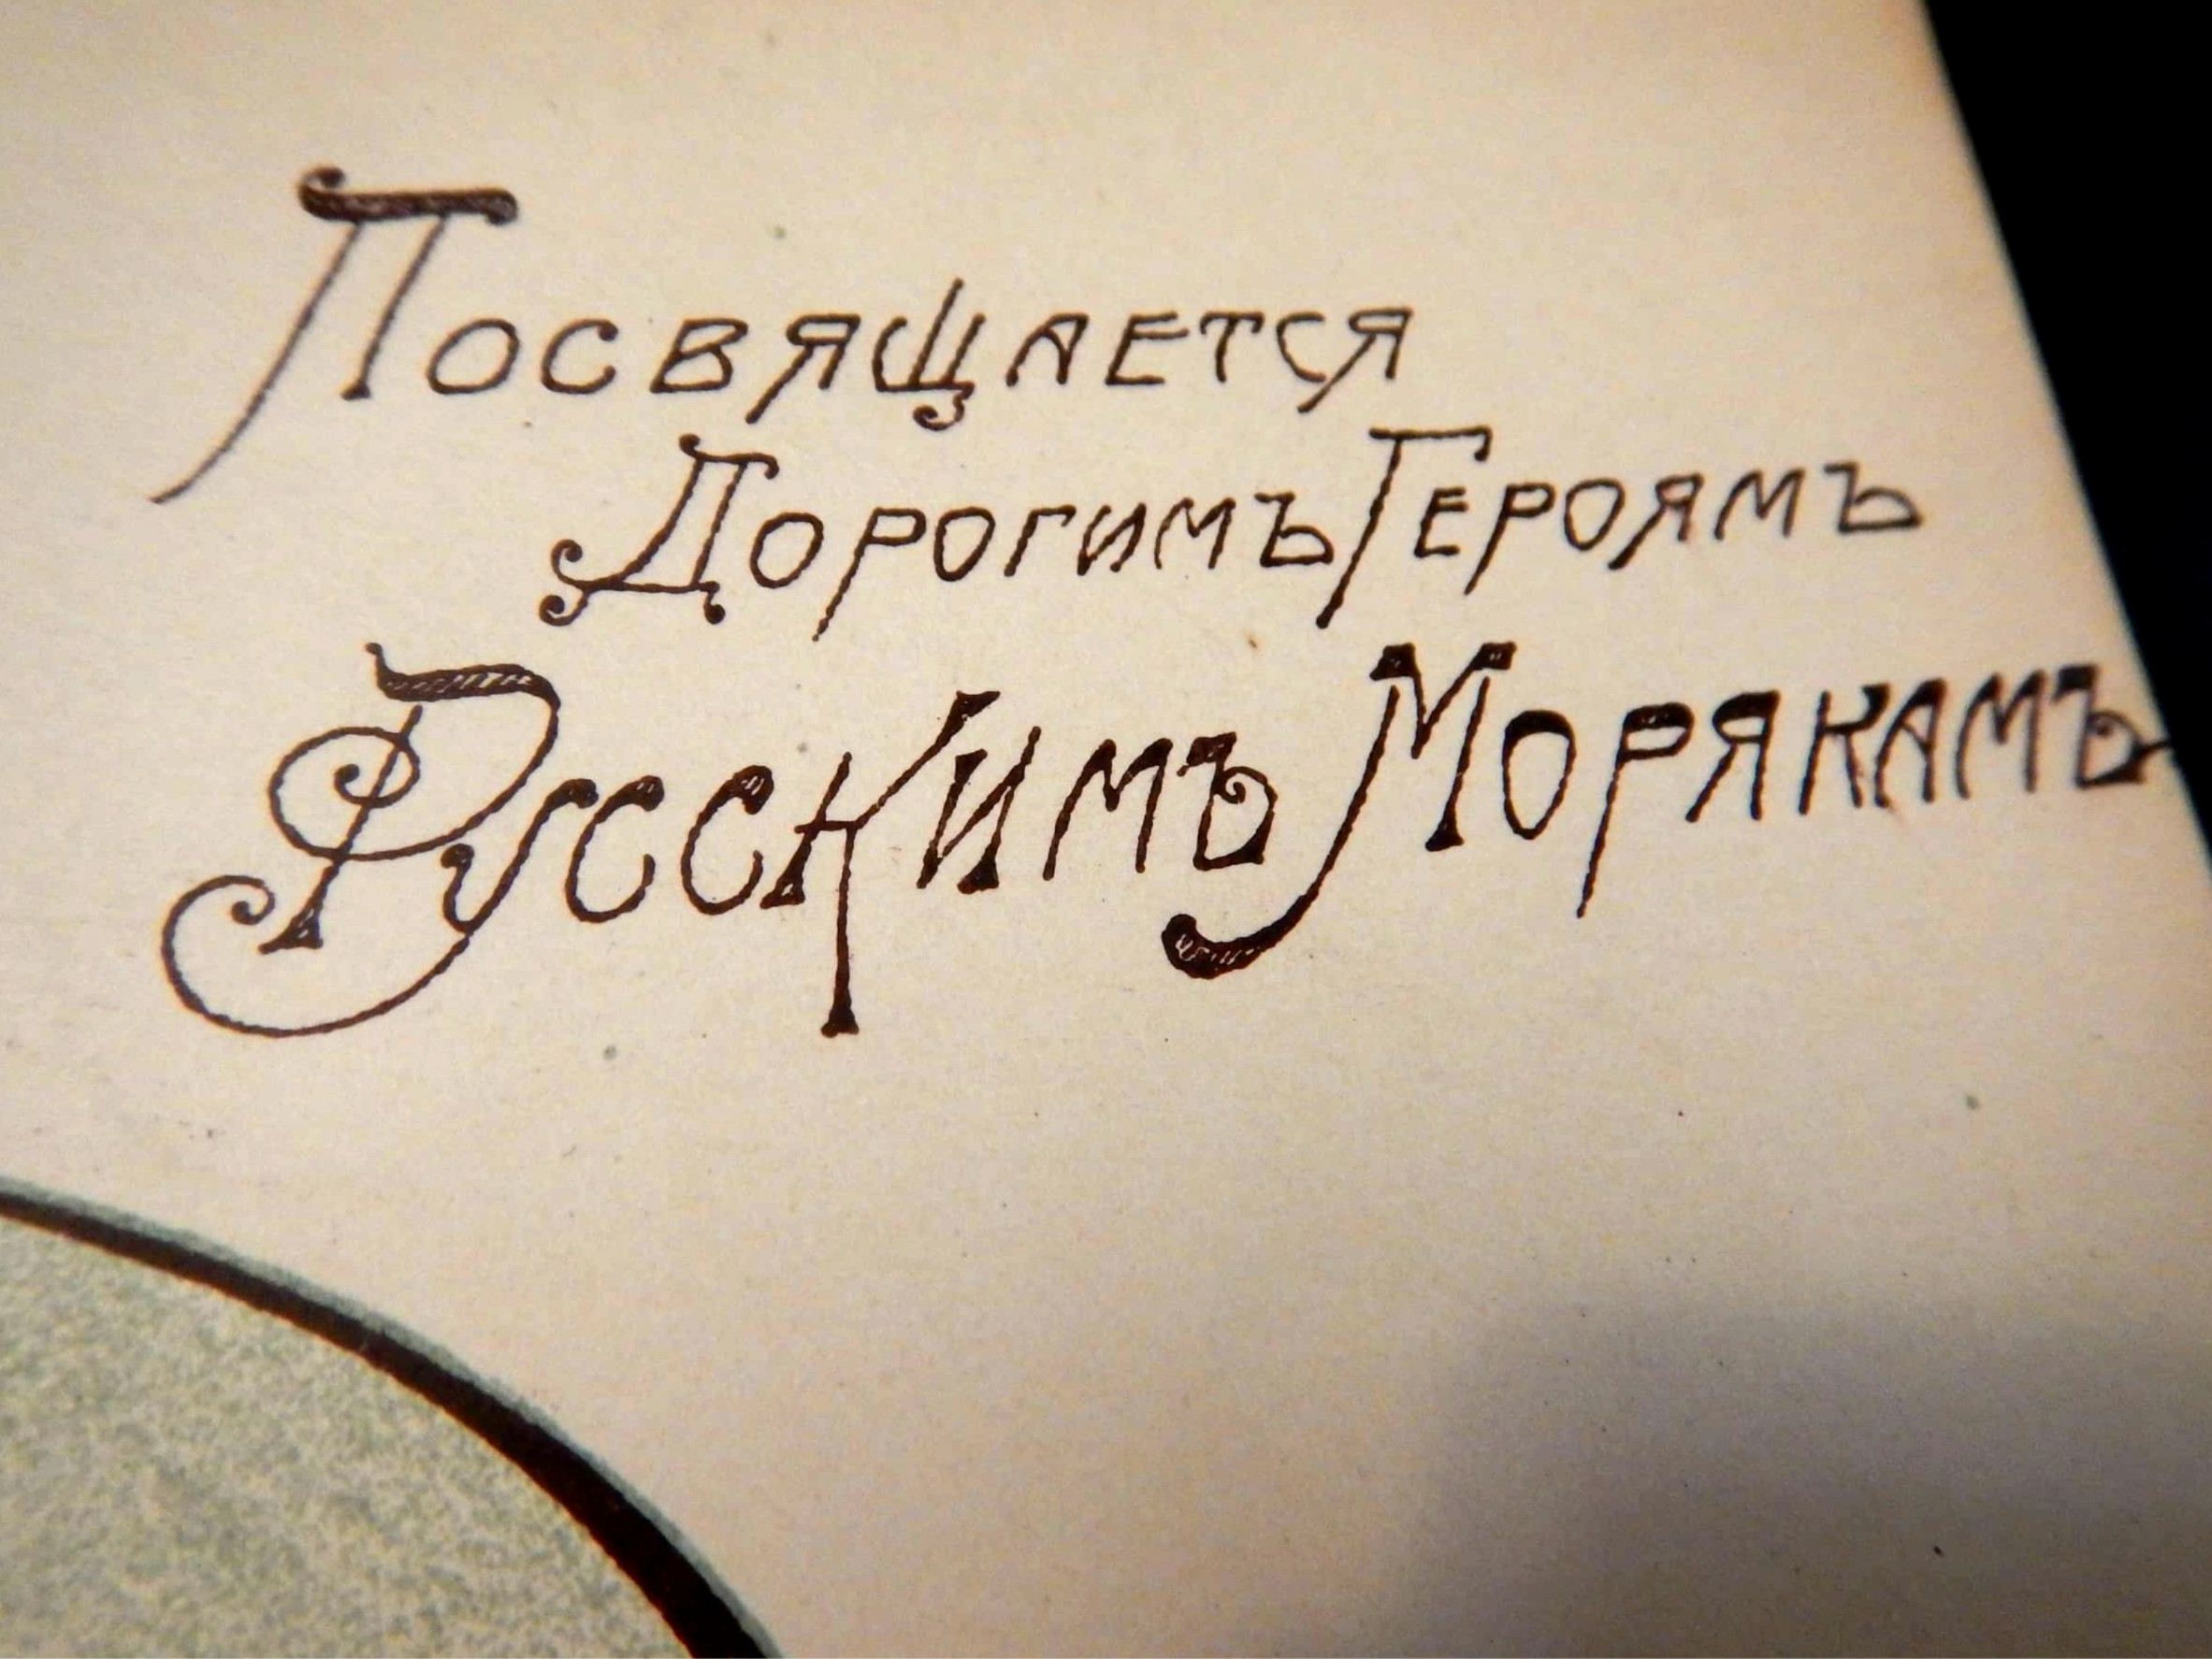 Посвящается
Дорогимъ Героямъ
Русскимъ Морякамъ